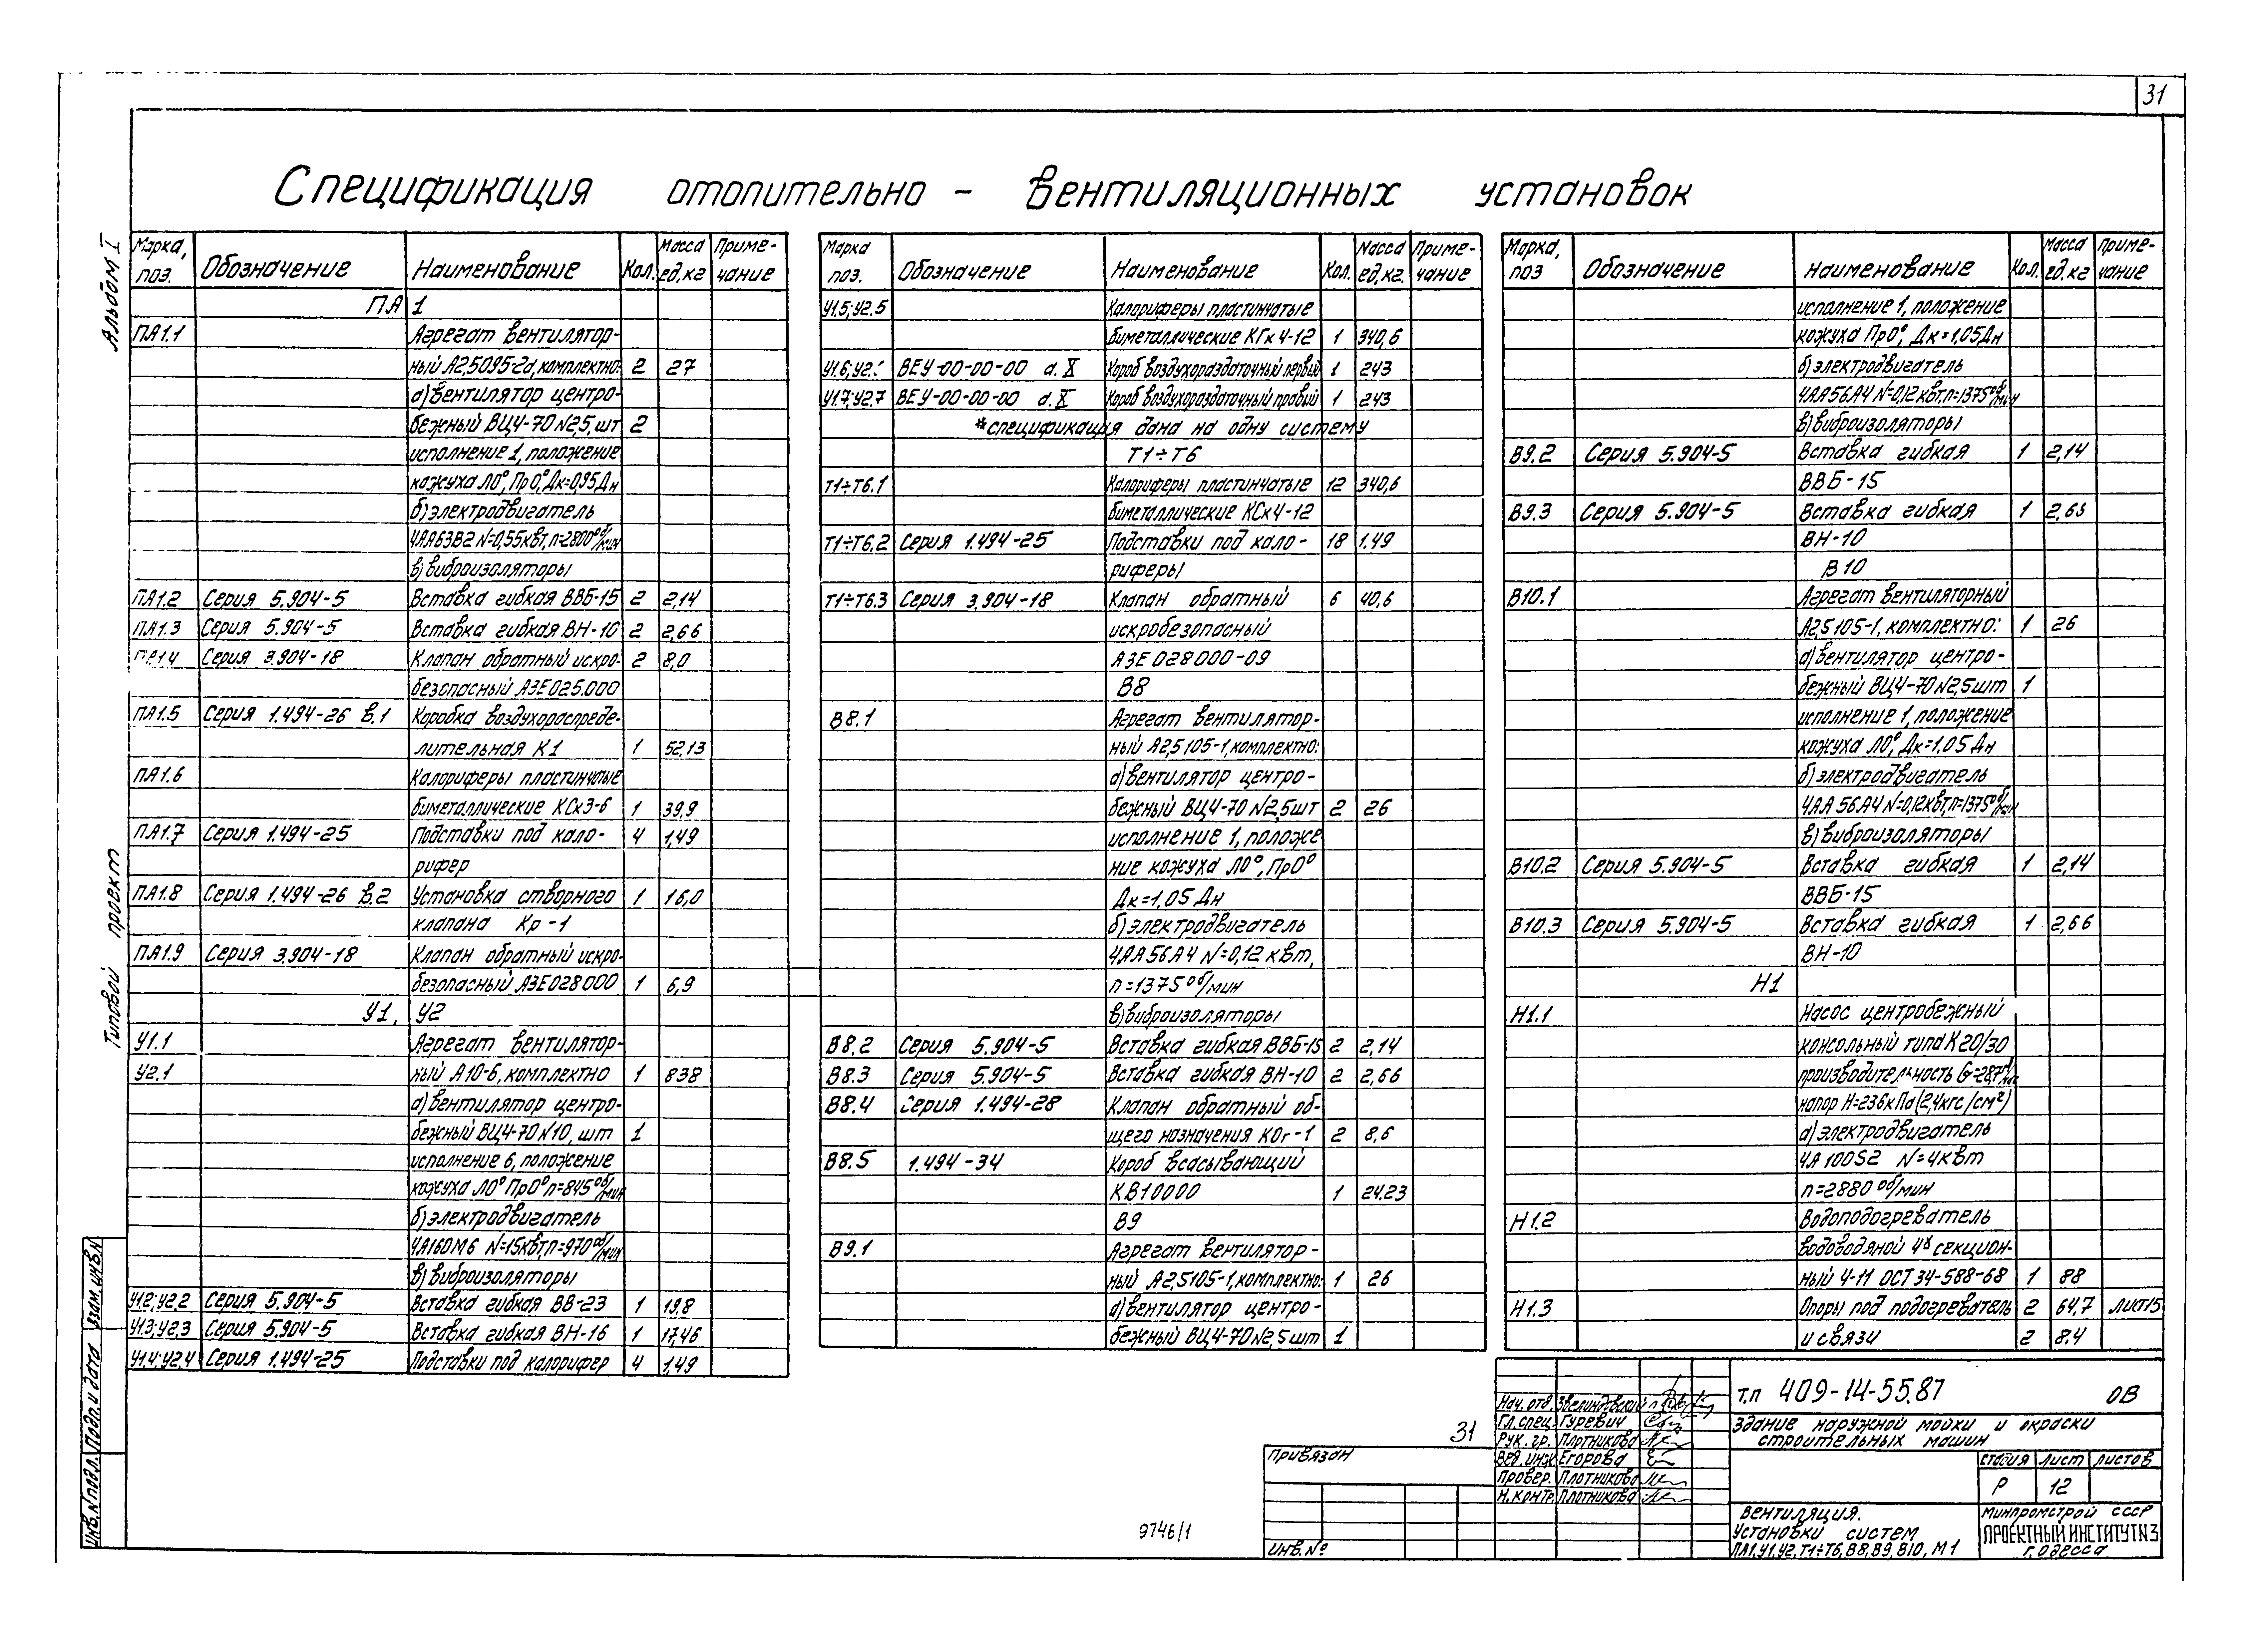 31
Спецификация отопительно - вентиляционных установок
Альбом I
Типовой проект
Марка, поз. Обозначение Наименование Кол. Масса ед,кг Приме-чание
ПА 1
ПА1.1 Агрегат вентилятор-
ный А2,5095-2а, комплектно: 2 27
а) вентилятор центро-
бежный ВЦ4-70 №2,5, шт 2
исполнение 1, положение
кожуха Л0°, Пр0°, Дк=0,95Дн
б) электродвигатель
4АА63В2 N=0,55квт, n=2800 об/мин
в) виброизоляторы
ПА1.2 Серия 5.904-5 Вставка гибкая ВВБ-15 2 2,14
ПА1.3 Серия 5.904-5 Вставка гибкая ВН-10 2 2,66
ПА1.4 Серия 3.904-18 Клапан обратный искро- 2 8,0
безопасный АЗЕ025.000
ПА1.5 Серия 1.494-26 в.1 Коробка воздухораспреде-
лительная К1 1 52,13
ПА1.6 Калориферы пластинчатые
биметаллические КСк3-6 1 39,9
ПА1.7 Серия 1.494-25 Подставки под кало- 4 1,49
рифер
ПА1.8 Серия 1.494-26 в.2 Установка створного 1 16,0
клапана Кр-1
ПА1.9 Серия 3.904-18 Клапан обратный искро-
безопасный АЗЕ028000 1 6,9
У1, У2
У1.1 Агрегат вентилятор-
У2.1 ный А10-6, комплектно 1 838
а) вентилятор центро-
бежный ВЦ4-70 №10, шт 1
исполнение 6, положение
кожуха Л0° Пр0° n=845 об/мин
б) электродвигатель
4А160М6 N=15квт, n=970 об/мин
в) виброизоляторы
У1.2; У2.2 Серия 5.904-5 Вставка гибкая ВВ-23 1 19,8
У1.3; У2.3 Серия 5.904-5 Вставка гибкая ВН-16 1 17,46
У1.4; У2.4 Серия 1.494-25 Подставки под калорифер 4 1,49
Марка поз. Обозначение Наименование Кол. Масса ед,кг. Приме-чание
У1.5; У2.5 Калориферы пластинчатые
биметаллические КГк 4-12 1 340,6
У1.6; У2. ВЕУ-00-00-00 а. X Короб воздухораздаточный первый 1 243
У1.7; У2.7 ВЕУ-00-00-00 а. X Короб воздухораздаточный правый 1 243
*спецификация дана на одну систему
Т1÷Т6
Т1÷Т6.1 Калориферы пластинчатые 12 340,6
биметаллические КСк4-12
Т1÷Т6.2 Серия 1.494-25 Подставки под кало- 18 1.49
риферы
Т1÷Т6.3 Серия 3.904-18 Клапан обратный 6 40,6
искробезопасный
АЗЕ 028000-09
В8
В8.1 Агрегат вентилятор-
ный А2,5 105-1, комплектно:
а) вентилятор центро-
бежный ВЦ4-70 №2,5шт 2 26
исполнение 1, положе
ние кожуха Л0°, Пр0°
Дк=1,05 Дн
б) электродвигатель
4АА56А4 N=0,12 квт,
n=1375 об/мин
в) виброизоляторы
В8.2 Серия 5.904-5 Вставка гибкая ВВБ-15 2 2,14
В8.3 Серия 5.904-5 Вставка гибкая ВН-10 2 2,66
В8.4 Серия 1.494-28 Клапан обратный об-
щего назначения КОг-1 2 8,6
В8.5 1.494-34 Короб всасывающий
КВ10000 1 24.23
В9
В9.1 Агрегат вентилятор-
ный А2,5105-1, комплектно: 1 26
а) вентилятор центро-
бежный ВЦ4-70 №2,5 шт 1
Марка, поз Обозначение Наименование Кол. Масса ед,кг Приме-чание
исполнение 1, положение
кожуха Пр0°, Дк=1,05Дн
б) электродвигатель
4АА56А4 N=0,12 квт, n=1375 об/мин
в) виброизоляторы
В9.2 Серия 5.904-5 Вставка гибкая 1 2,14
ВВБ-15
В9.3 Серия 5.904-5 Вставка гибкая 1 2,66
ВН-10
В10
В10.1 Агрегат вентиляторный
А2,5 105-1, комплектно: 1 26
а) вентилятор центро-
бежный ВЦ4-70 №2,5шт 1
исполнение 1, положение
кожуха Л0°, Дк=1,05 Дн
б) электродвигатель
4АА 56А4 N=0,12квт, n=1375 об/мин
в) виброизоляторы
В10.2 Серия 5.904-5 Вставка гибкая 1 2,14
ВВБ-15
В10.3 Серия 5.904-5 Вставка гибкая 1 2,66
ВН-10
Н1
Н1.1 Насос центробежный
консольный типа К20/30
производительность G=28,7
напор Н=236кПа (2,4кгс/см²)
а) электродвигатель
4А 100S2 N=4квт
n=2880 об/мин
Н1.2 Водоподогреватель
водоводяной 4х секцион-
ный 4-11 ОСТ 34-588-68 1 88
Н1.3 Опоры под подогреватель 2 64,7 лист15
и связи 2 8.4
Взам. инв. N
Подп. и дата
Инв. N подл.
31
9746/1
Привязан
Инв. №
Нач. отд. Звелиндовский
Гл. спец. Гуревич
Рук. гр. Плотникова
Вед. инж. Егорова
Провер. Плотникова
Н. контр. Плотникова
т.п 409-14-55.87 ОВ
Здание наружной мойки и окраски
строительных машин
стадия лист листов
Р 12
Вентиляция.
Установки систем
ПА1, У1, У2, Т1÷Т6, В8, В9, В10, М1
Минпромстрой СССР
ПРОЕКТНЫЙ ИНСТИТУТ N3
г. Одесса